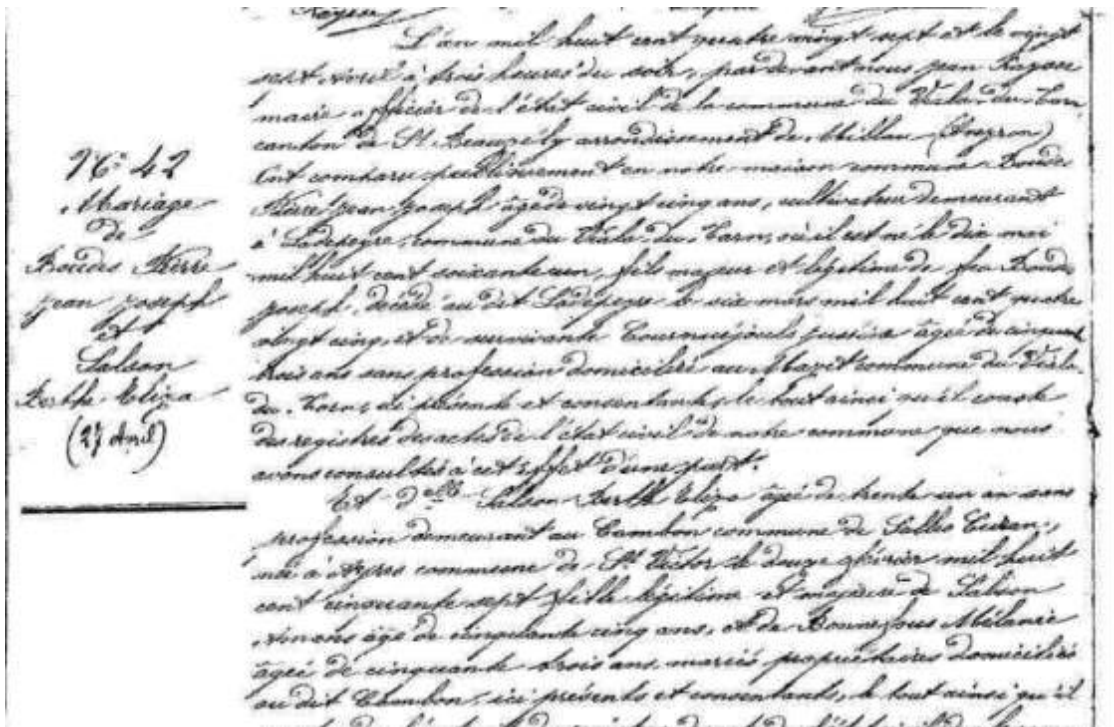 L'an mil huit cent quatre vingt sept et le vingt
sept avril à trois heures du soir, par devant nous Jean
maire officier de l'état civil de la commune du Viala-du-Tarn
canton de St Beauzély arrondissement de Millau (Aveyron)
Ont comparu publiquement en notre maison commune Boudes
Pierre Jean Joseph âgé de vingt cinq ans, cultivateur demeurant
à Ladepeyre, commune du Viala-du-Tarn, où il est né le dix mai
mil huit cent soixante un, fils majeur et légitime de feu Boudes
Joseph, décédé au dit Ladepeyre le six mars mil huit cent quatre
vingt cinq, et de survivante âgée de cinquante
trois ans sans profession domiciliée au Mazet commune du Viala-
du-Tarn, ici présente et consentante, le tout ainsi qu'il conste
des registres des actes de l'état civil de notre commune que nous
avons consultés à cet effet d'une part.
Et d'elle Salson Berthe Eliza âgée de trente un an sans
profession demeurant au Cambon commune de Salles Curan,
née à Ayres commune de St Victor le douze février mil huit
cent cinquante sept fille légitime et majeure de Salson
âgé de cinquante cinq ans, et de Bonnefous Mélanie
âgée de cinquante trois ans, mariés propriétaires domiciliés
au dit Chambon, ici présents et consentants, le tout ainsi qu'il
N° 42
Mariage
de
Boudes Pierre
Jean Joseph
et
Salson
Berthe Eliza
(27 Avril)